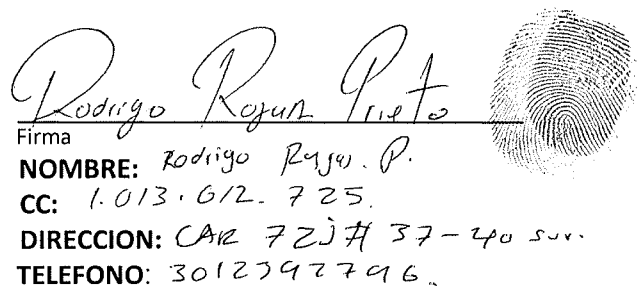 Rodrigo Rojas Prieto
Firma
NOMBRE: Rodrigo Rojas. P.
CC: 1.013.612.725.
DIRECCION: CAR 72J # 37-40 sur.
TELEFONO: 3012392796.